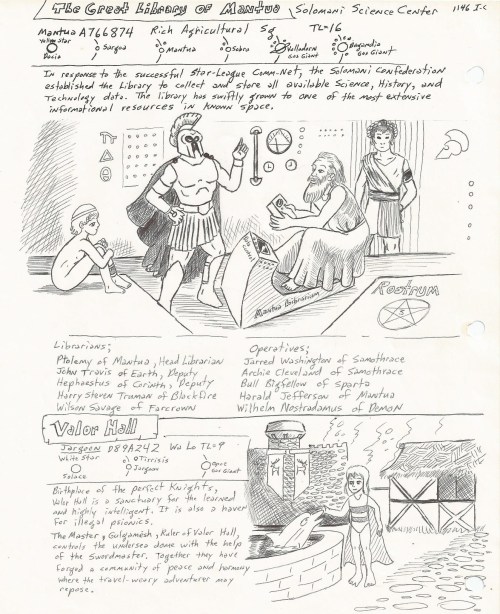 The Great Library of Mantua
Solomani Science Center
1146 I.C
Mantua A766874 Rich Agricultural Sg TL=16
Yellow Star
Dacia
Sargoa
Mantua
Sabra
Valladorn
Gas Giant
Bagandia
Gas Giant
In response to the successful Star-League Comm-Net, the Solomani Confederation
established the Library to collect and store all available Science, History, and
Technology data. The library has swiftly grown to one of the most extensive
informational resources in known space.
Mantua Bribrarium
Rostrum
5
Librarians;
Ptolemy of Mantua, Head Librarian
John Travis of Earth, Deputy
Hephaestus of Corinth, Deputy
Harry Steven Truman of Blackfire
Wilson Savage of Farcrown
Operatives;
Jarred Washington of Samothrace
Archie Cleveland of Samothrace
Bull Bigfellow of Sparta
Harald Jefferson of Mantua
Wilhelm Nostradamus of DEMON
Valor Hall
Jargoon D89A242 Wa Lo TL=9
White Star
Solace
Tirrisis
Jargoon
Gas Giant
Birthplace of the perfect Knights,
Valor Hall is a sanctuary for the learned
and highly intelligent. It is also a haven
for illegal psionics.
The Master, Golgamesh, Ruler of Valor Hall,
controls the undersea dome with the help
of the Swordmaster. Together they have
forged a community of peace and harmony
where the travel-weary adventurer may
repose.